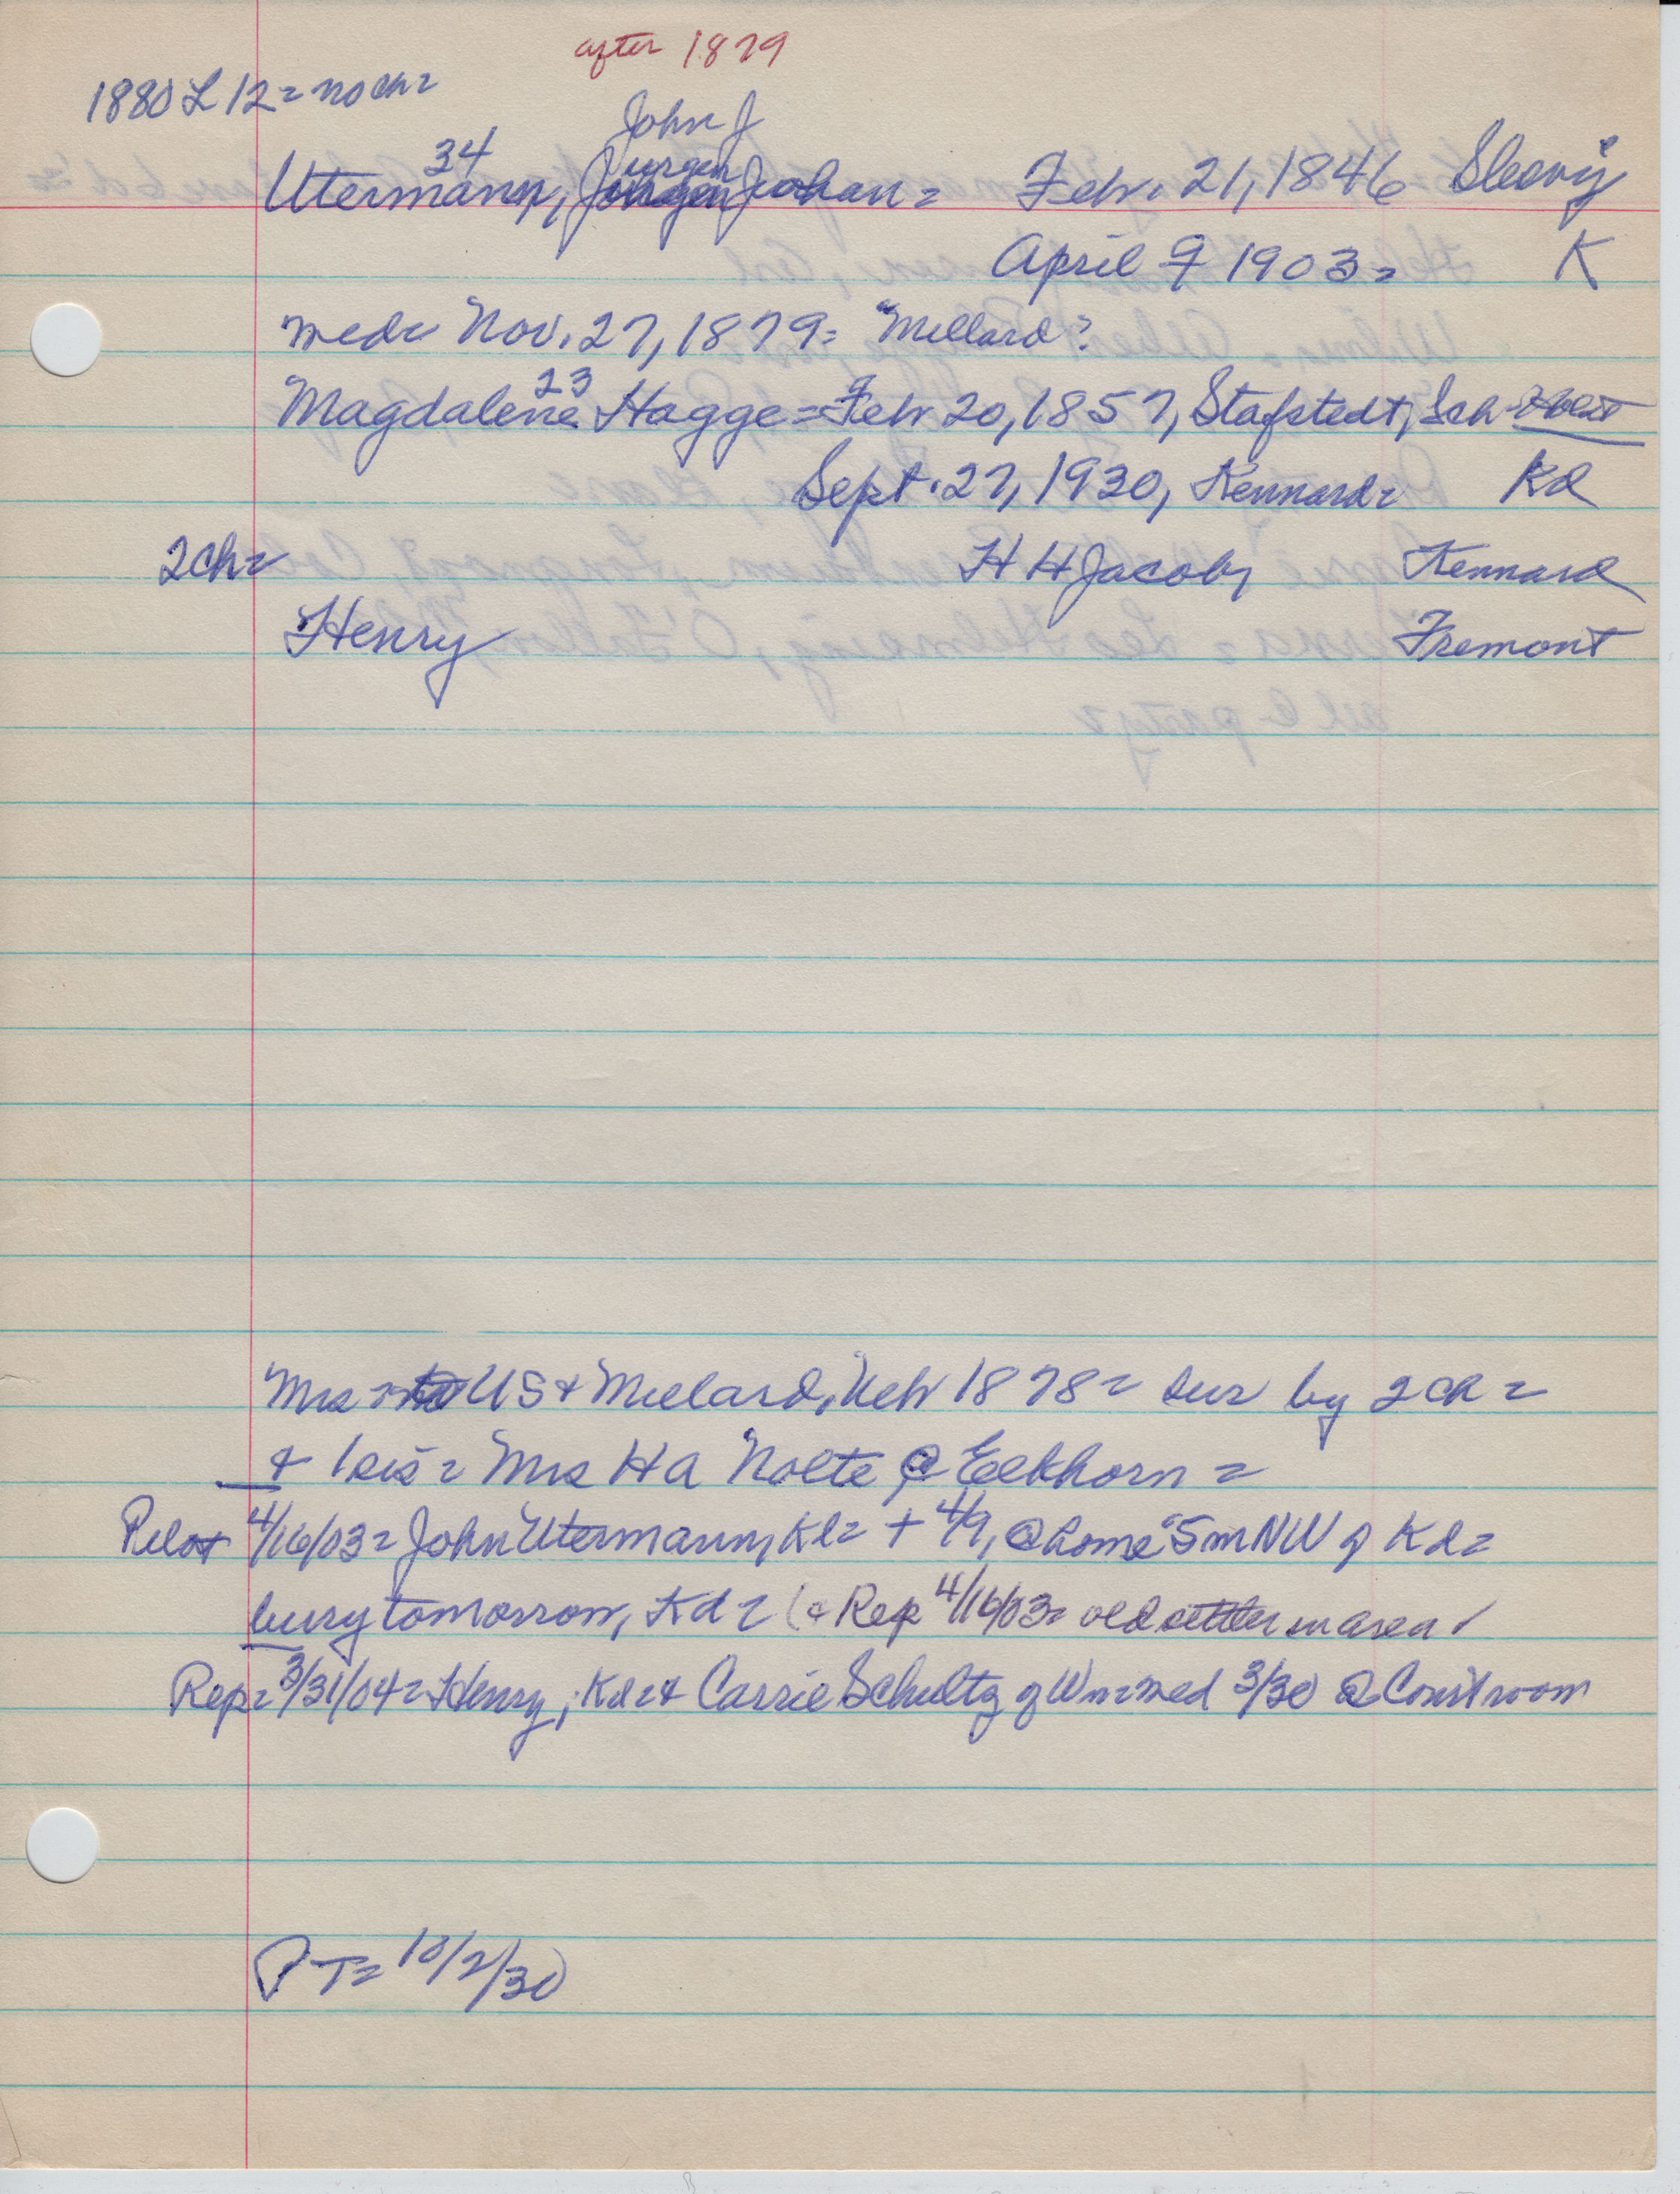 after 1879
1880 L 12 = no ch =
John J
34 urgen
Utermann, Johan = Feb. 21, 1846 Slesvij
April 9 1903 = K
med = Nov. 27, 1879 = "Mellard?
23
Magdalene Hagge = Feb 20, 1857, Stafstedt, Sch-Holst
Sept. 27, 1930, Kennard = Kd
2 ch = H H Jacoby Kennard
Henry Fremont
Mrs = to US & Millard, Neb 1878 = sur by 2 ch =
& 1 sis = Mrs H A Nolte @ Elkhorn =
Pilot 4/16/03 = John Utermann, Kd = + 4/9, @ home "5 m NW of Kd =
bury tomorrow, Kd = (& Rep 4/16/03 = old settler in area /
Rep = 3/31/04 = Henry, Kd = & Carrie Schultz of Wn = med 3/30 @ Courtroom
P T = 10/2/30